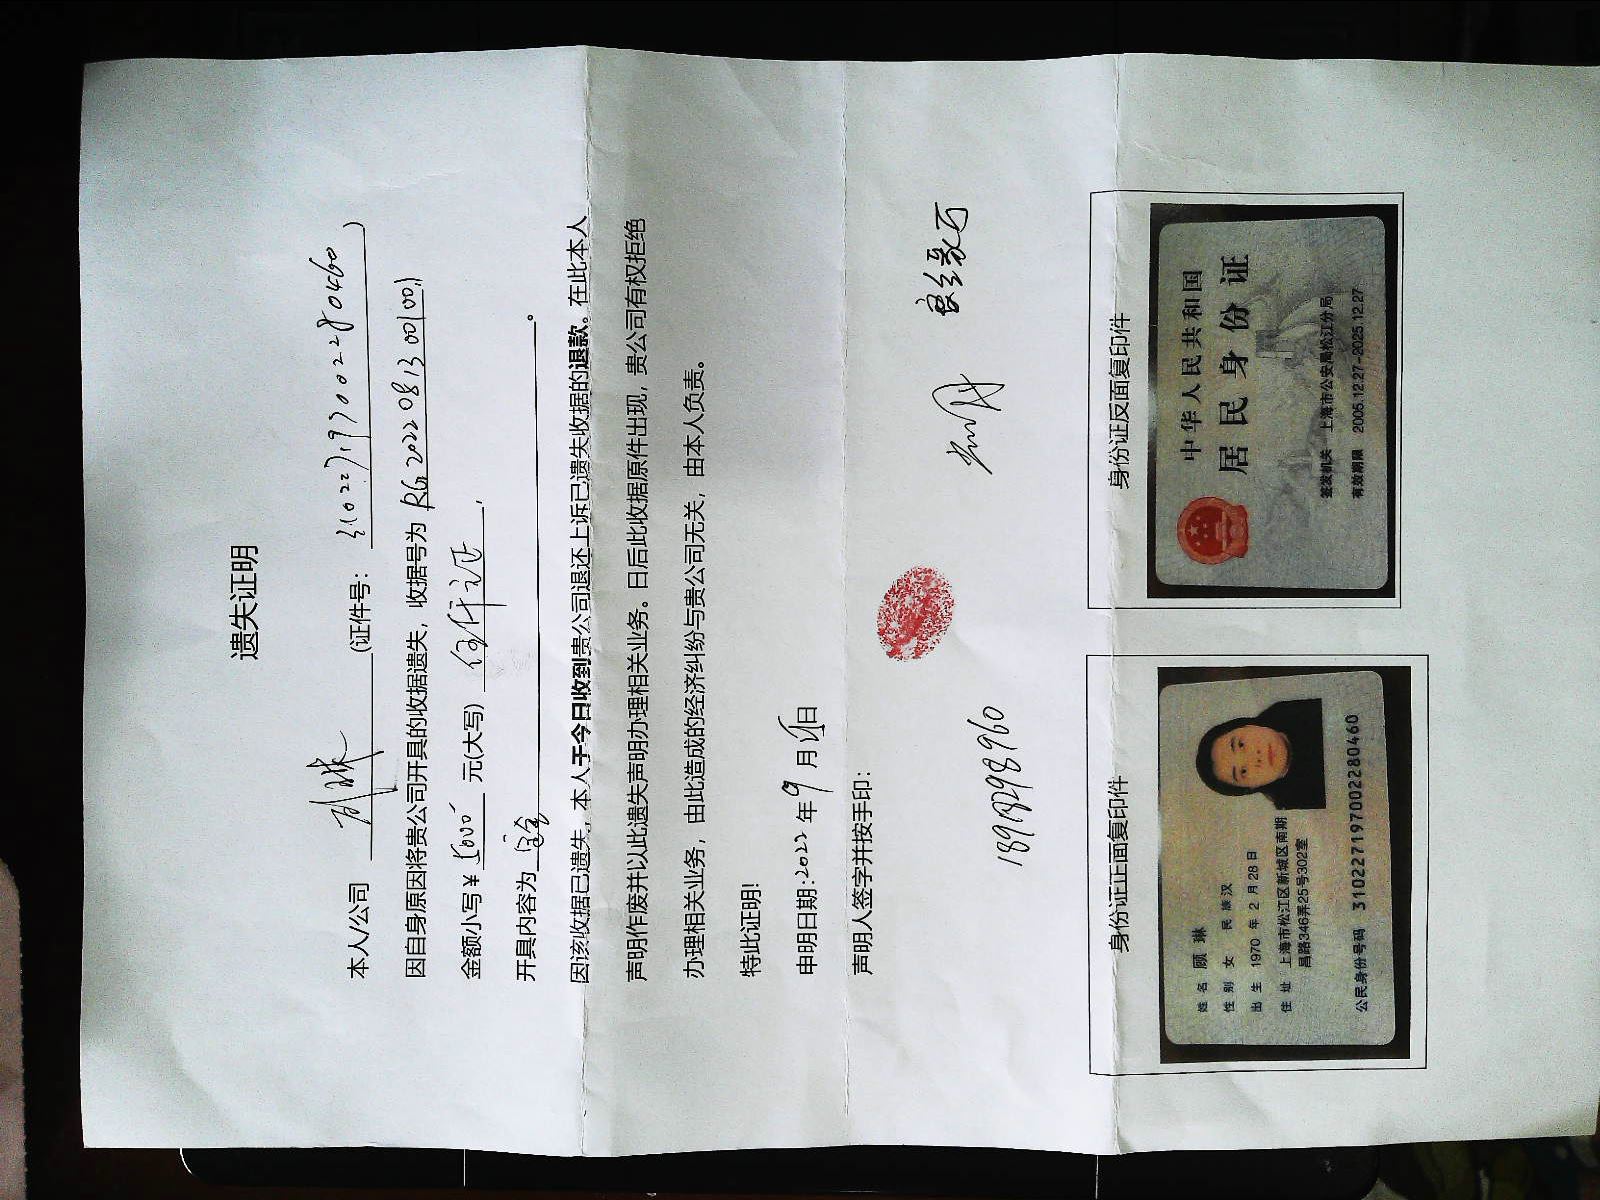 遗失证明
本人/公司 顾琳 (证件号: 310227197002280460)
因自身原因将贵公司开具的收据遗失，收据号为 RG2022081300100,
金额小写¥ 5000 元(大写) 伍仟元,
开具内容为 定金 。
因该收据已遗失，本人于今日收到贵公司退还上诉已遗失收据的退款。在此本人
声明作废并以此遗失声明办理相关业务。日后此收据原件出现，贵公司有权拒绝
办理相关业务，由此造成的经济纠纷与贵公司无关，由本人负责。
特此证明!
申明日期:2022年9月 日
声明人签字并按手印:
身份证正面复印件
姓名 顾琳
性别 女 民族 汉
出生 1970 年 2 月 28 日
住址 上海市松江区新城区南期
昌路346弄25号302室
公民身份号码 310227197002280460
身份证反面复印件
中华人民共和国
居民身份证
签发机关 上海市公安局松江分局
有效期限 2005.12.27-2025.12.27